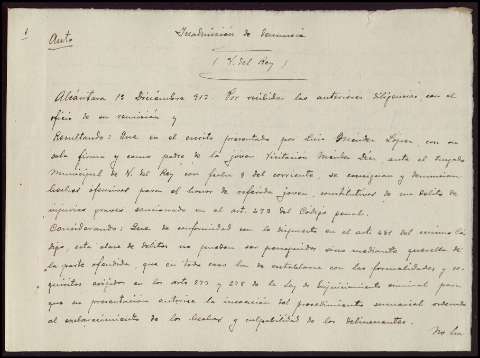 1
Auto
Inadmisión de denuncia
(V. del Rey)
Alcántara 12 Diciembre 912. Por recibidas las anteriores diligencias con el
oficio de su remisión y
Resultando: Que en el escrito presentado por Luis Méndez López, con su
sola firma y como padre de la joven Visitación Méndez Díaz, ante el Juzgado
Municipal de V. del Rey con fecha 9 del corriente, se consignan y denuncian
hechos ofensivos para el honor de referida joven, constitutivos de un delito de
injurias graves sancionado en el art. 473 del Código penal.
Considerando: Que de conformidad con lo dispuesto en el art. 482 del mismo Có
digo, esta clase de delitos no pueden ser perseguidos sino mediante querella de
la parte ofendida, que en todo caso ha de entablarse con las formalidades y re-
quisitos exigidos en los arts 277 y 278 de la ley de Enjuiciamiento criminal para
que su presentación autorice la incoación del procedimiento sumarial ordenado
al esclarecimiento de los hechos y culpabilidad de los delincuentes.
No ha